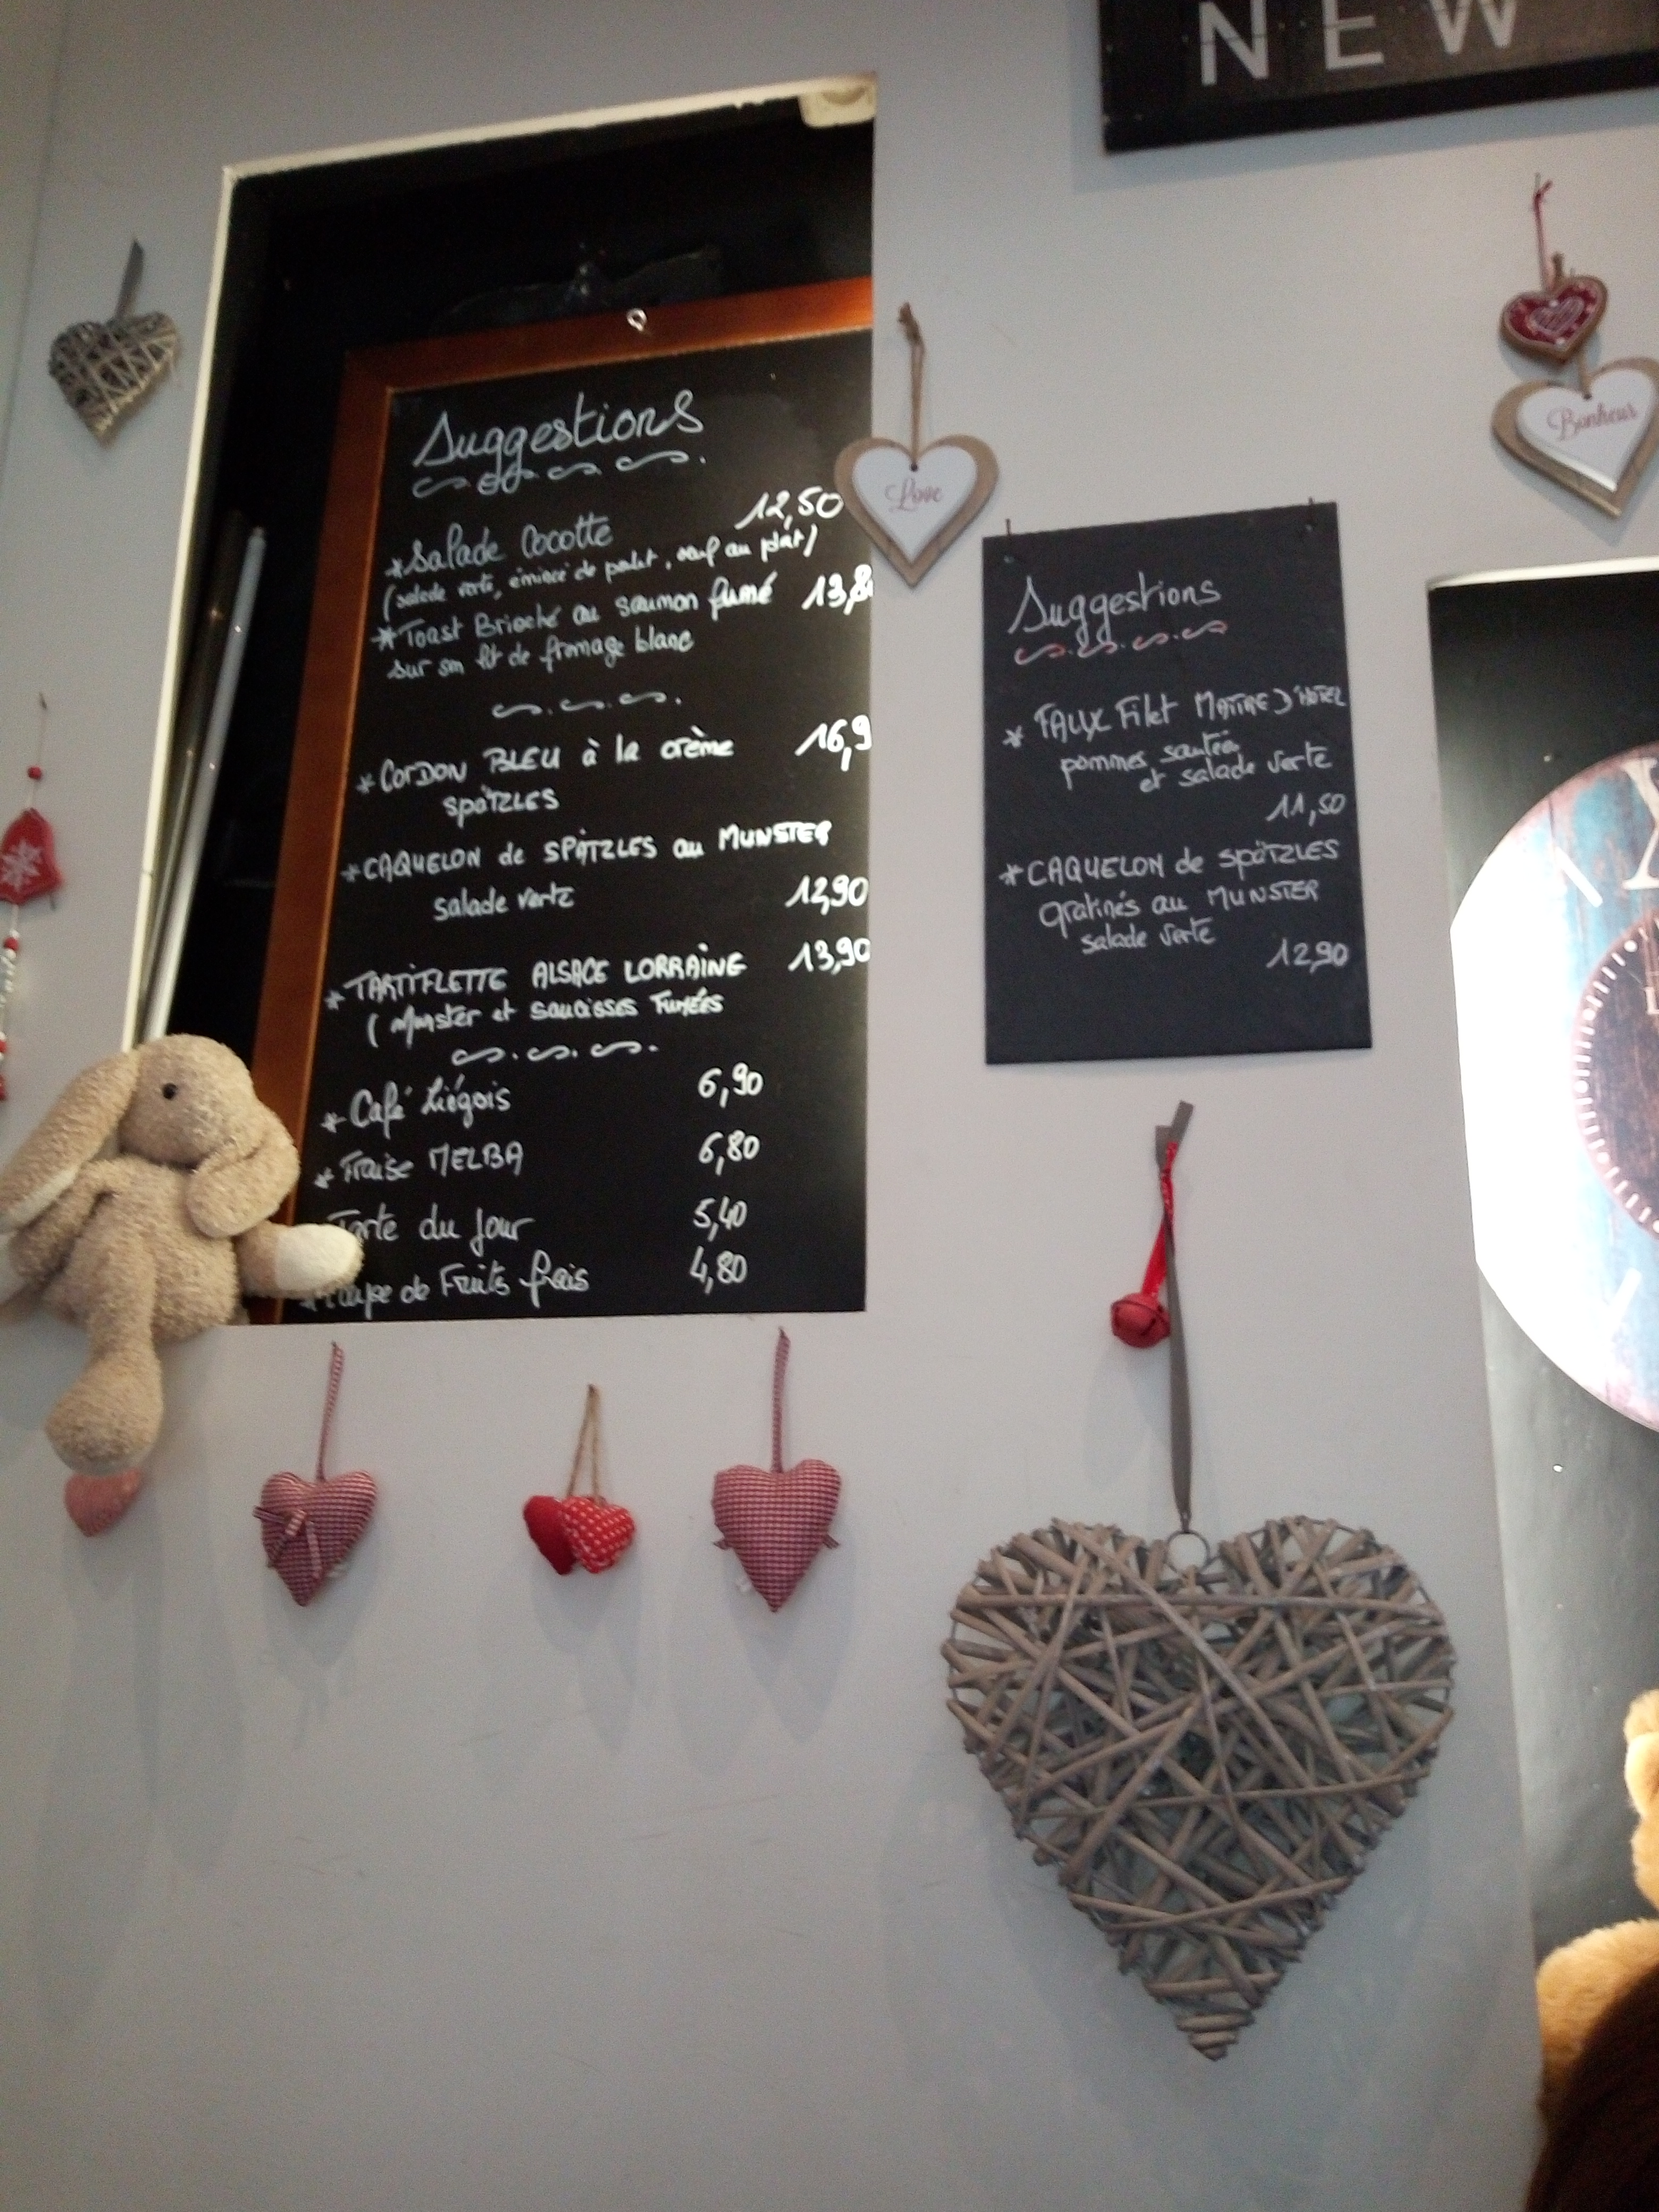 NEW
Suggestions
12,50
*Salade Cocotte
(salade verte, émincé de poulet, oeuf au plat)
*Toast Brioché au saumon fumé 13,8
sur son lit de fromage blanc
*CORDON BLEU à la crème 16,9
SPÄTZLES
*CAQUELON de SPÄTZLES au MUNSTER
salade verte 12,90
*TARTIFLETTE ALSACE LORRAINE 13,90
(Munster et saucisses FUMÉES
*Café Liégois 6,90
*Fraise MELBA 6,80
Tarte du Jour 5,40
de Fruits frais 4,80
Love
Bonheur
Suggestions
* FAUX Filet MAITRE D'HOTEL
pommes sautées
et salade verte
11,50
*CAQUELON de SPÄTZLES
gratinés au MUNSTER
salade verte
12,90